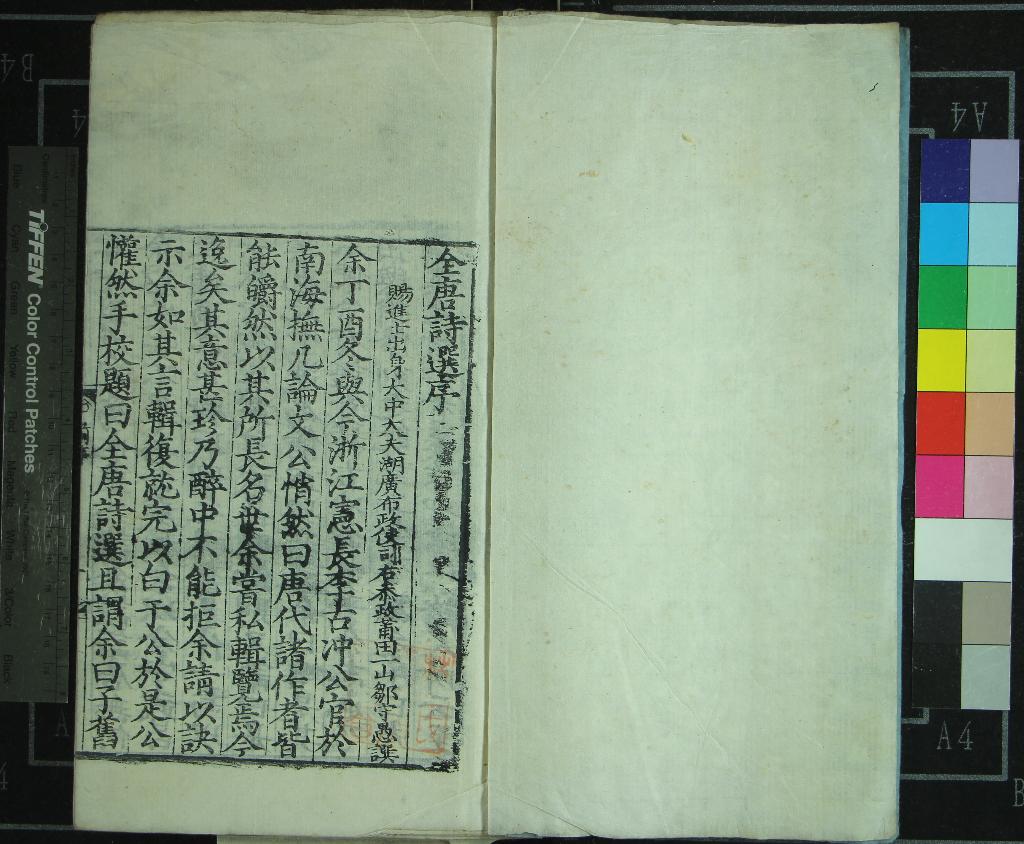 全唐詩選序
賜進士出身大中大夫湖廣布政使司右參政莆田一山鄒守愚譔
余丁酉冬與今浙江憲長李古冲公官於
南海撫几論文公悄然曰唐代諸作者皆
能皭然以其所長名世余嘗私輯覽焉今
逸矣其意甚珍乃醉中不能拒余請以訣
示余如其言輯復就完以白于公於是公
懽然手校題曰全唐詩選且謂余曰子舊
TIFFEN Color Control Patches
A4
A4
B4